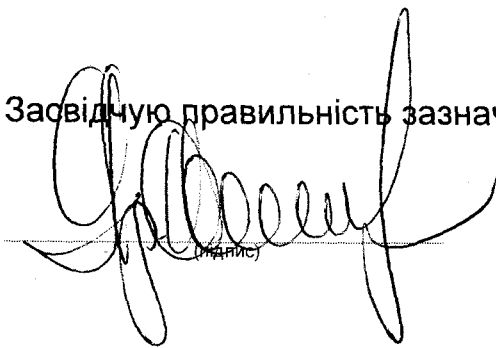 Засвідчую правильність зазнач
(підпис)